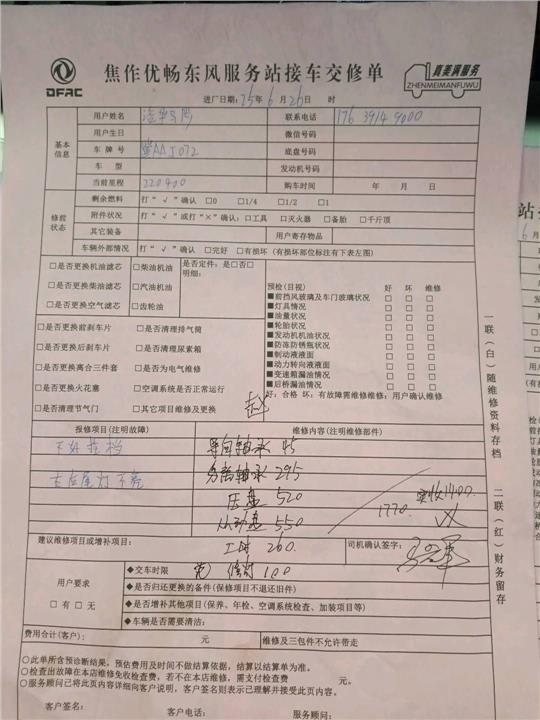 DFAC
焦作优畅东风服务站接车交修单
真美满服务
ZHENMEIMANFUWU
进厂日期：25年6月26日 时
基本信息
用户姓名 联系电话 176 3914 9000
用户生日 微信号码
车牌号 底盘号码
车型 发动机号码
当前里程 220400 购车时间 年 月 日
修前状态
剩余燃料 打“√”确认 □0 □1/4 □1/2 □1
附件状况 打“√”或打“×”确认：□工具 □灭火器 □备胎 □千斤顶
其它装备 用户寄存物品
车辆外部情况 打“√”确认 □完好 □有损坏（有损坏部位标注有下表左图）
□是否更换机油滤芯 □柴油机油 是否定件：是□否□
明细：
□是否更换柴油滤芯 □汽油机油
□是否更换空气滤芯 □齿轮油
□是否更换前刹车片 □是否清理排气筒
□是否更换后刹车片 □是否清理尿素箱
□是否更换离合三件套 □是否为电气维修
□是否更换火花塞 □空调系统是否正常运行
□是否清理节气门 □其它项目维修及更换
预检（目视） 好 坏 维修
■前挡风玻璃及车门玻璃状况 □ □ □
■灯具情况 □ □ □
■油量状况 □ □ □
■轮胎状况 □ □ □
■发动机机油状况 □ □ □
■防冻防锈瓶状况 □ □ □
■制动液液面 □ □ □
■动力转向液液面 □ □ □
■变速箱漏油情况 □ □ □
■后桥漏油情况 □ □ □
好：合格 坏：有故障需维修维修：用户确认维修
报修项目（注明故障） 维修内容（注明维修部件）
不好挂档 导向轴承 45
右后尾灯不亮 分离轴承 295
压盘 520
从动盘 550
1770. 实收1700.
工时 260.
建议维修项目或增补项目： 司机确认签字：
用户要求
□有 □无
◆交车时限 修灯 100
◆是否归还更换的备件（保修项目不退还旧件）
◆是否增补其他项目（保养、年检、空调系统检查、加装项目等）
◆车辆是否需要清洁：
费用合计(客户)： 元 维修及三包件不允许带走
○此单所含预诊断结果，预估费用及时间不做结算依据，结算以结算单为准。
○检查出故障在本店维修免收检查费，若不在本店维修，需支付检查费 元。
○服务顾问已将此页内容详细向客户说明，客户签名则表示已理解并接受此页内容。
客户签名： 客户电话： 服务顾问：
一联（白）随维修资料存档
二联（红）财务留存